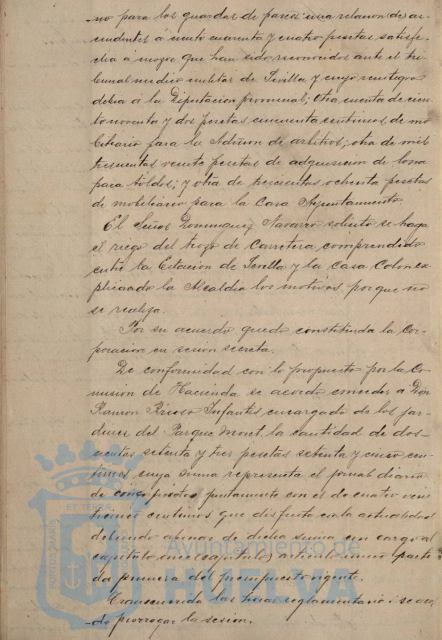 no para los guardas de paseo; una relacion de as
cendentes á ciento cuarenta y cuatro pesetas satisfe
cha á mozos que han sido reconocidos ante el tri
bunal medico militar de Sevilla y cuyo reintegro
debia á la Diputacion provincial; otra cuenta de cien
to noventa y dos pesetas cincuenta centimos, de mo
biliario para la Admon de arbitrios; otra de mil
trescientas veinte pesetas de adquisicion de lona
para toldos; y otra de trescientas ochenta pesetas
de mobiliario para la Casa Ayuntamiento.
El Señor Dominguez Navarro solicitó se haga
el riego del trozo de Carretera, comprendido
entre la Estacion de Sevilla y la Casa Colon ex
plicando la Alcaldia los motivos porque no
se realiza.
Por su acuerdo quedó constituida la Cor
poracion en sesion secreta.
De conformidad con lo propuesto por la Co
mision de Hacienda se acordó conceder á Don
Ramon Infantes, encargado de los jar
dines del Parque Moret, la cantidad de dos
cientas setenta y tres pesetas setenta y cinco cen
timos cuya suma representa el jornal diario
de juntamente con el de cuatro
centimos que disfruta en la actualidad
debiendo de dicha suma con cargo al
capitulo articulo parti
da primera del presupuesto vigente.
Transcurridas las horas reglamentarias se acor
dó prorrogar la sesion.
Ayuntamiento de
HUELVA